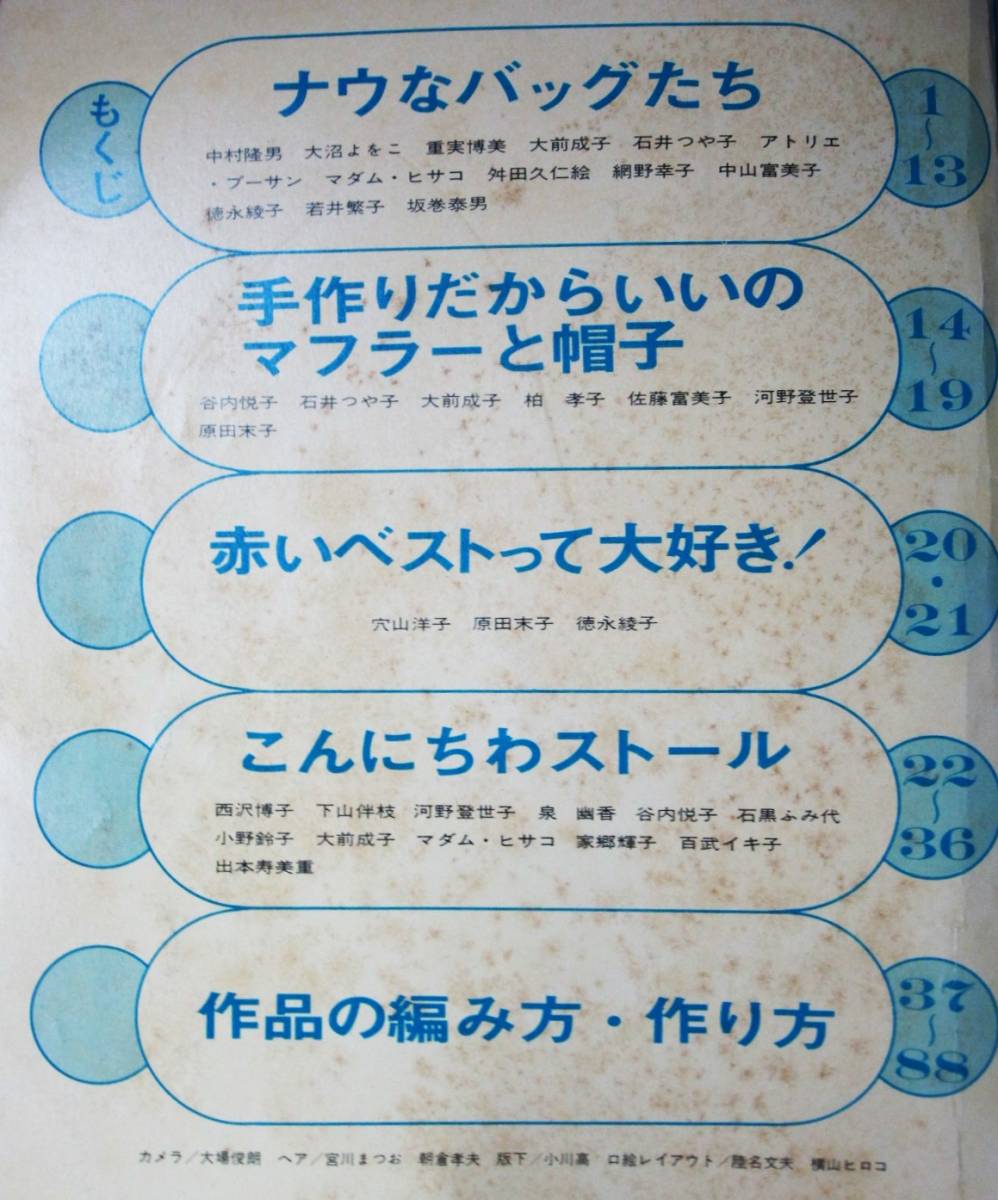 もくじ
ナウなバッグたち
1〜13
中村隆男 大沼よをこ 重実博美 大前成子 石井つや子 アトリエ
・プーサン マダム・ヒサコ 舛田久仁絵 網野幸子 中山富美子
徳永綾子 若井繁子 坂巻泰男
手作りだからいいの
マフラーと帽子
14〜19
谷内悦子 石井つや子 大前成子 柏 孝子 佐藤富美子 河野登世子
原田末子
赤いベストって大好き!
20・21
穴山洋子 原田末子 徳永綾子
こんにちわストール
22〜36
西沢博子 下山伴枝 河野登世子 泉 幽香 谷内悦子 石黒ふみ代
小野鈴子 大前成子 マダム・ヒサコ 家郷輝子 百武イキ子
出本寿美重
作品の編み方・作り方
37〜88
カメラ／大場俊朗 ヘア／宮川まつお 朝倉孝夫 版下／小川高 口絵レイアウト／陸名文夫 横山ヒロコ